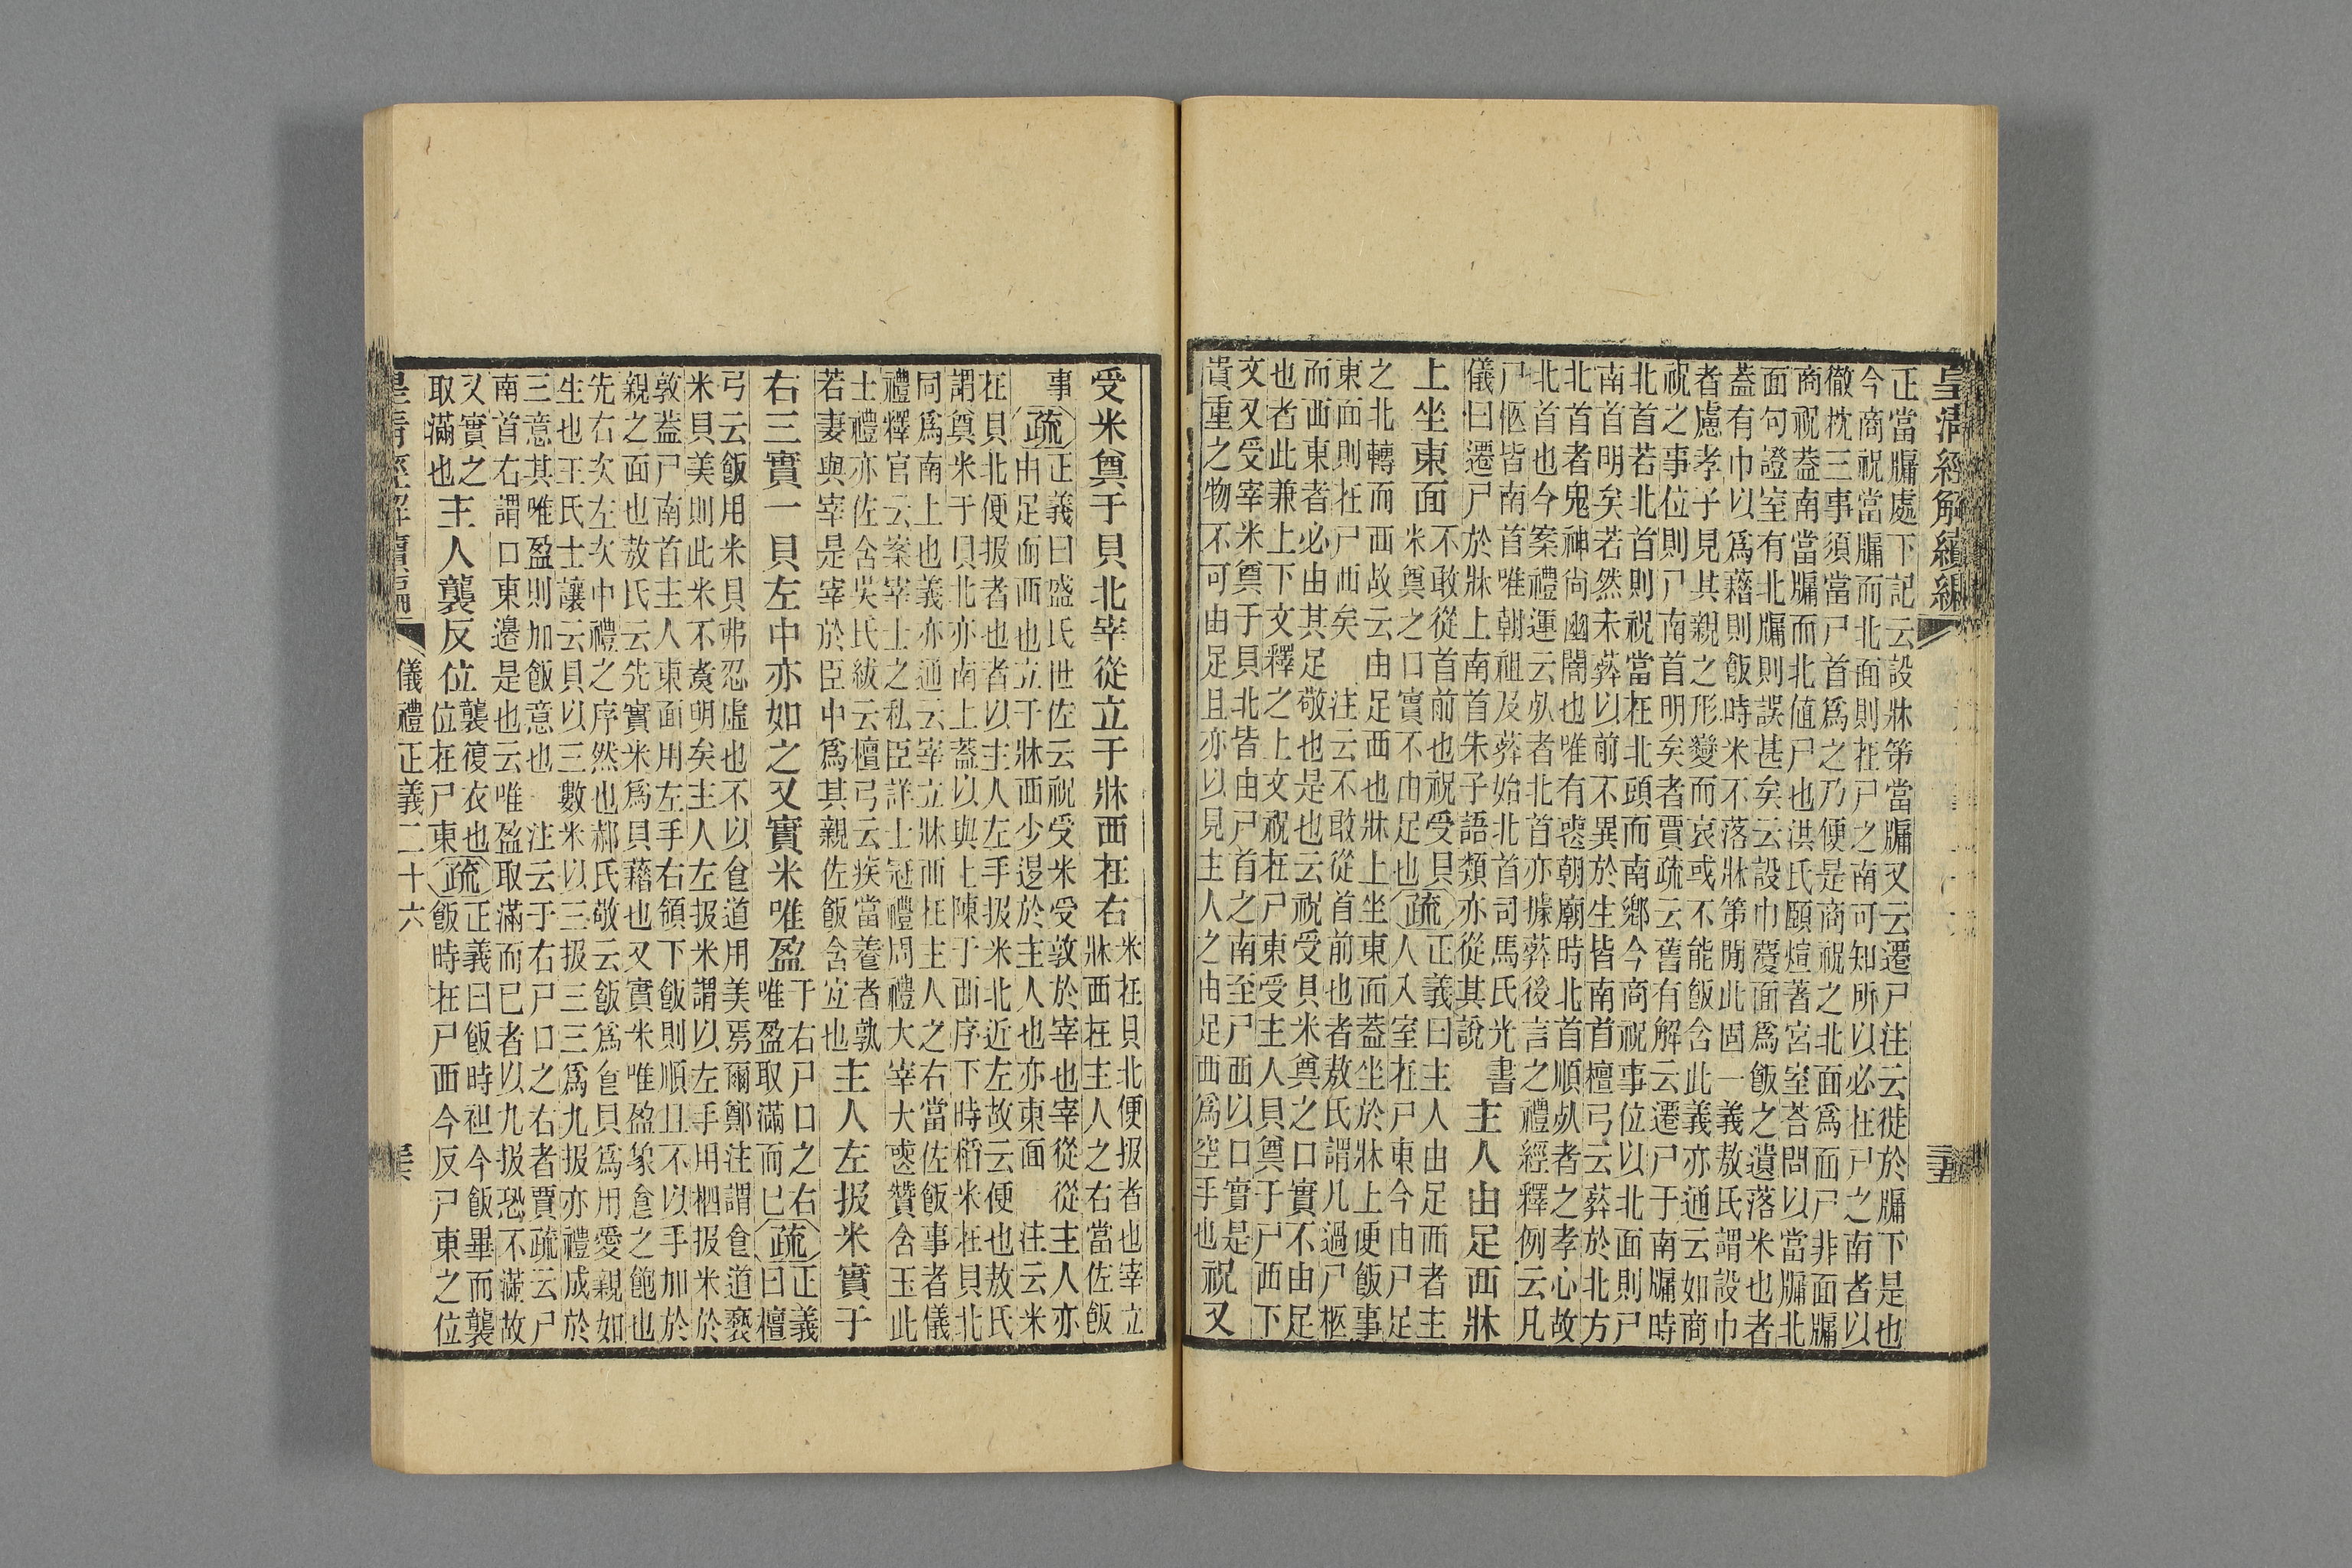 皇清經解續編
正當牖處下記云設牀第當牖又云遷尸注云徙於牖下是也
今商祝當牖而北面則在尸之南可知所以必在尸之南者以
徹枕三事須當尸首爲之乃便是商祝之北面爲面尸非面牖
商祝葢南當牖而北値尸也洪氏頤煊著宮室荅問以當牖北
面句證室有北牖則誤甚矣云設巾覆面爲飯之遺落米也者
葢有巾以爲藉則飯時米不落牀第閒此固一義敖氏謂設巾
者慮孝子見其親之形變而哀或不能飯含此義亦通云如商
祝之事位則尸南首明矣者賈疏云舊有解云遷尸于南牖時
北首若北首則祝當在北頭而南鄉今商祝事位以北面則尸
南首明矣若然未葬以前不異於生皆南首檀弓云葬於北方
北首者鬼神尚幽闇也唯有喪朝廟時北首順死者之孝心故
北首也今案禮運云死者北首亦據葬後言之禮經釋例云凡
尸柩皆南首唯朝祖及葬始北首司馬氏光書
儀曰遷尸於牀上南首朱子語類亦從其說
主人由足西牀
上坐東面
不敢從首前也祝受貝
米奠之口實不由足也
疏
正義曰主人由足西者主
人入室在尸東今由尸足
之北轉而西故云由足西也牀上坐東面葢坐於牀上便飯事
東面則在尸西矣　注云不敢從首前也者敖氏謂凡過尸柩
而西東者必由其足敬也是也云祝受貝米奠之口實不由足
也者此兼上下文釋之上文祝在尸東受主人貝奠于尸西下
文又受宰米奠于貝北皆由尸首之南至尸西以口實是
貴重之物不可由足且亦以見主人之由足西爲空手也
祝又
受米奠于貝北宰從立于牀西在右
米在貝北便扱者也宰立
牀西在主人之右當佐飯
事
疏
正義曰盛氏世佐云祝受米受敦於宰也宰從從主人亦
由足而西也立于牀西少退於主人也亦東面　注云米
在貝北便扱者也者以主人左手扱米北近左故云便也敖氏
謂奠米于貝北亦南上葢以與上陳于西序下時稻米在貝北
同爲南上也義亦通云宰立牀西在主人之右當佐飯事者儀
禮釋官云案宰士之私臣詳士冠禮周禮大宰大喪贊含玉此
士禮亦佐含吳氏紱云檀弓云疾當養者孰
若妻與宰是宰於臣中爲其親佐飯含宜也
主人左扱米實于
右三實一貝左中亦如之又實米唯盈
于右尸口之右
唯盈取滿而已
疏
正義
曰檀
弓云飯用米貝弗忍虛也不以食道用美焉爾鄭注謂食道褻
米貝美則此米不煮明矣主人左扱米謂以左手用柶扱米於
敦葢尸南首主人東面用左手右領下飯則順且不以手加於
親之面也敖氏云先實米爲貝藉也又實米唯盈象食之飽也
先右次左次中禮之序然也郝氏敬云飯爲食貝爲用愛親如
生也王氏士讓云貝以三數米以三扱三三爲九扱亦禮成於
三意其唯盈則加飯意也　注云于右尸口之右者賈疏云尸
南首右謂口東邊是也云唯盈取滿而已者以九扱恐不滿故
又實之
取滿也
主人襲反位
襲復衣也
位在尸東
疏
正義曰飯時袒今飯畢而襲
飯時在尸西今反尸東之位
儀禮正義二十六